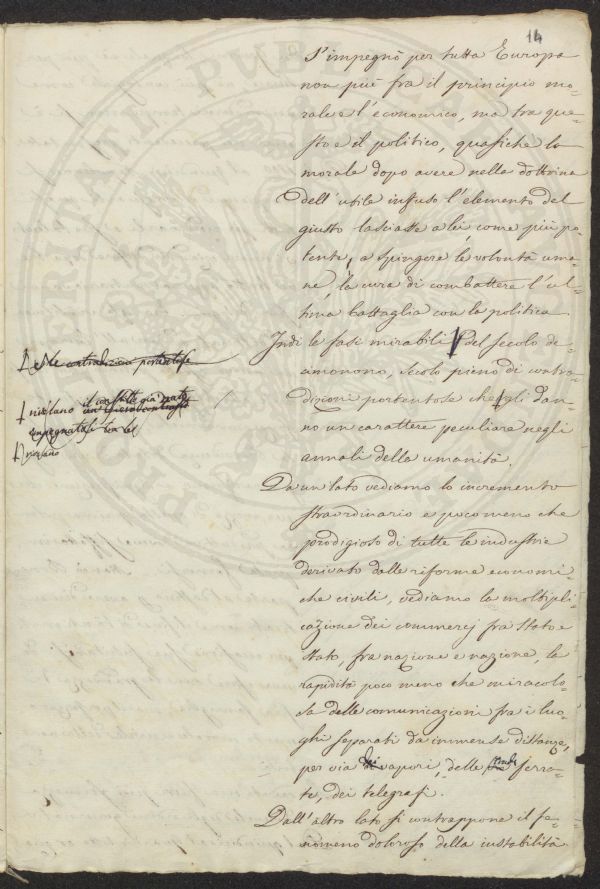 14
s'impegnò per tutta Europa
non più fra il principio mo-
rale e l'economico, ma tra que-
sto e il politico, quasiche la
morale dopo avere nella dottrina
dell'utile infuso l'elemento del
giusto lasciasse a lei come più po-
tente, a spingere le volontà uma-
ne, la cura di combattere l'ul-
tima battaglia con la politica.
Indi le fasi mirabili del secolo de-
cimonono, secolo pieno di contra-
dizioni portentose che gli dan-
no un carattere peculiare negli
annali della umanità.
Da un lato vediamo lo incremento
straordinario e poco meno che
prodigioso di tutte le industrie
derivato dalle riforme economi-
che civili, vediamo la moltipli-
cazione dei commercj fra stato e
stato, fra nazione e nazione, la
rapidità poco meno che miracolo-
sa delle comunicazioni fra i luo-
ghi separati da immense distanze,
per via di vapori, delle strade ferra-
te, dei telegrafi.
Dall'altro lato si contrappone il fe-
nomeno doloroso della instabilità
contradizioni portentose
rivelano il conflitto già nato
impegnatosi tra
rivelano
PVBLICAE